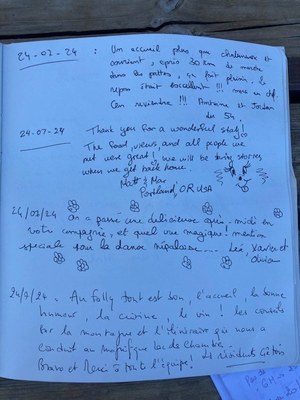 24-07-24 : Un accueil plus que chaleureux et
souriant, après 30 km de marche
dans les pattes, ça fait plaisir, le
repas était excellent !!! merci on
reviendra !!! Antoine et Jordan
du 54.
24-07-24 Thank you for a wonderful stay!
The food, views and all people we
met were great! We will be telling stories
when we get back home.
Matt & Max
Portland, OR USA
24/07/24 On a passé une délicieuse après-midi en
votre compagnie, et quel vue magique! mention
speciale pour la danse népalaise... Léi, Xavier et
24/7/24. Au Folly tout est bon, l'accueil, la bonne
humeur, la cuisine, le vin! les conseils
sur la montagne et l'itinéraire qui nous a
conduit au magnifique lac de Chambre.
Bravo et Merci à toute l'équipe! Les résidents Gîtois